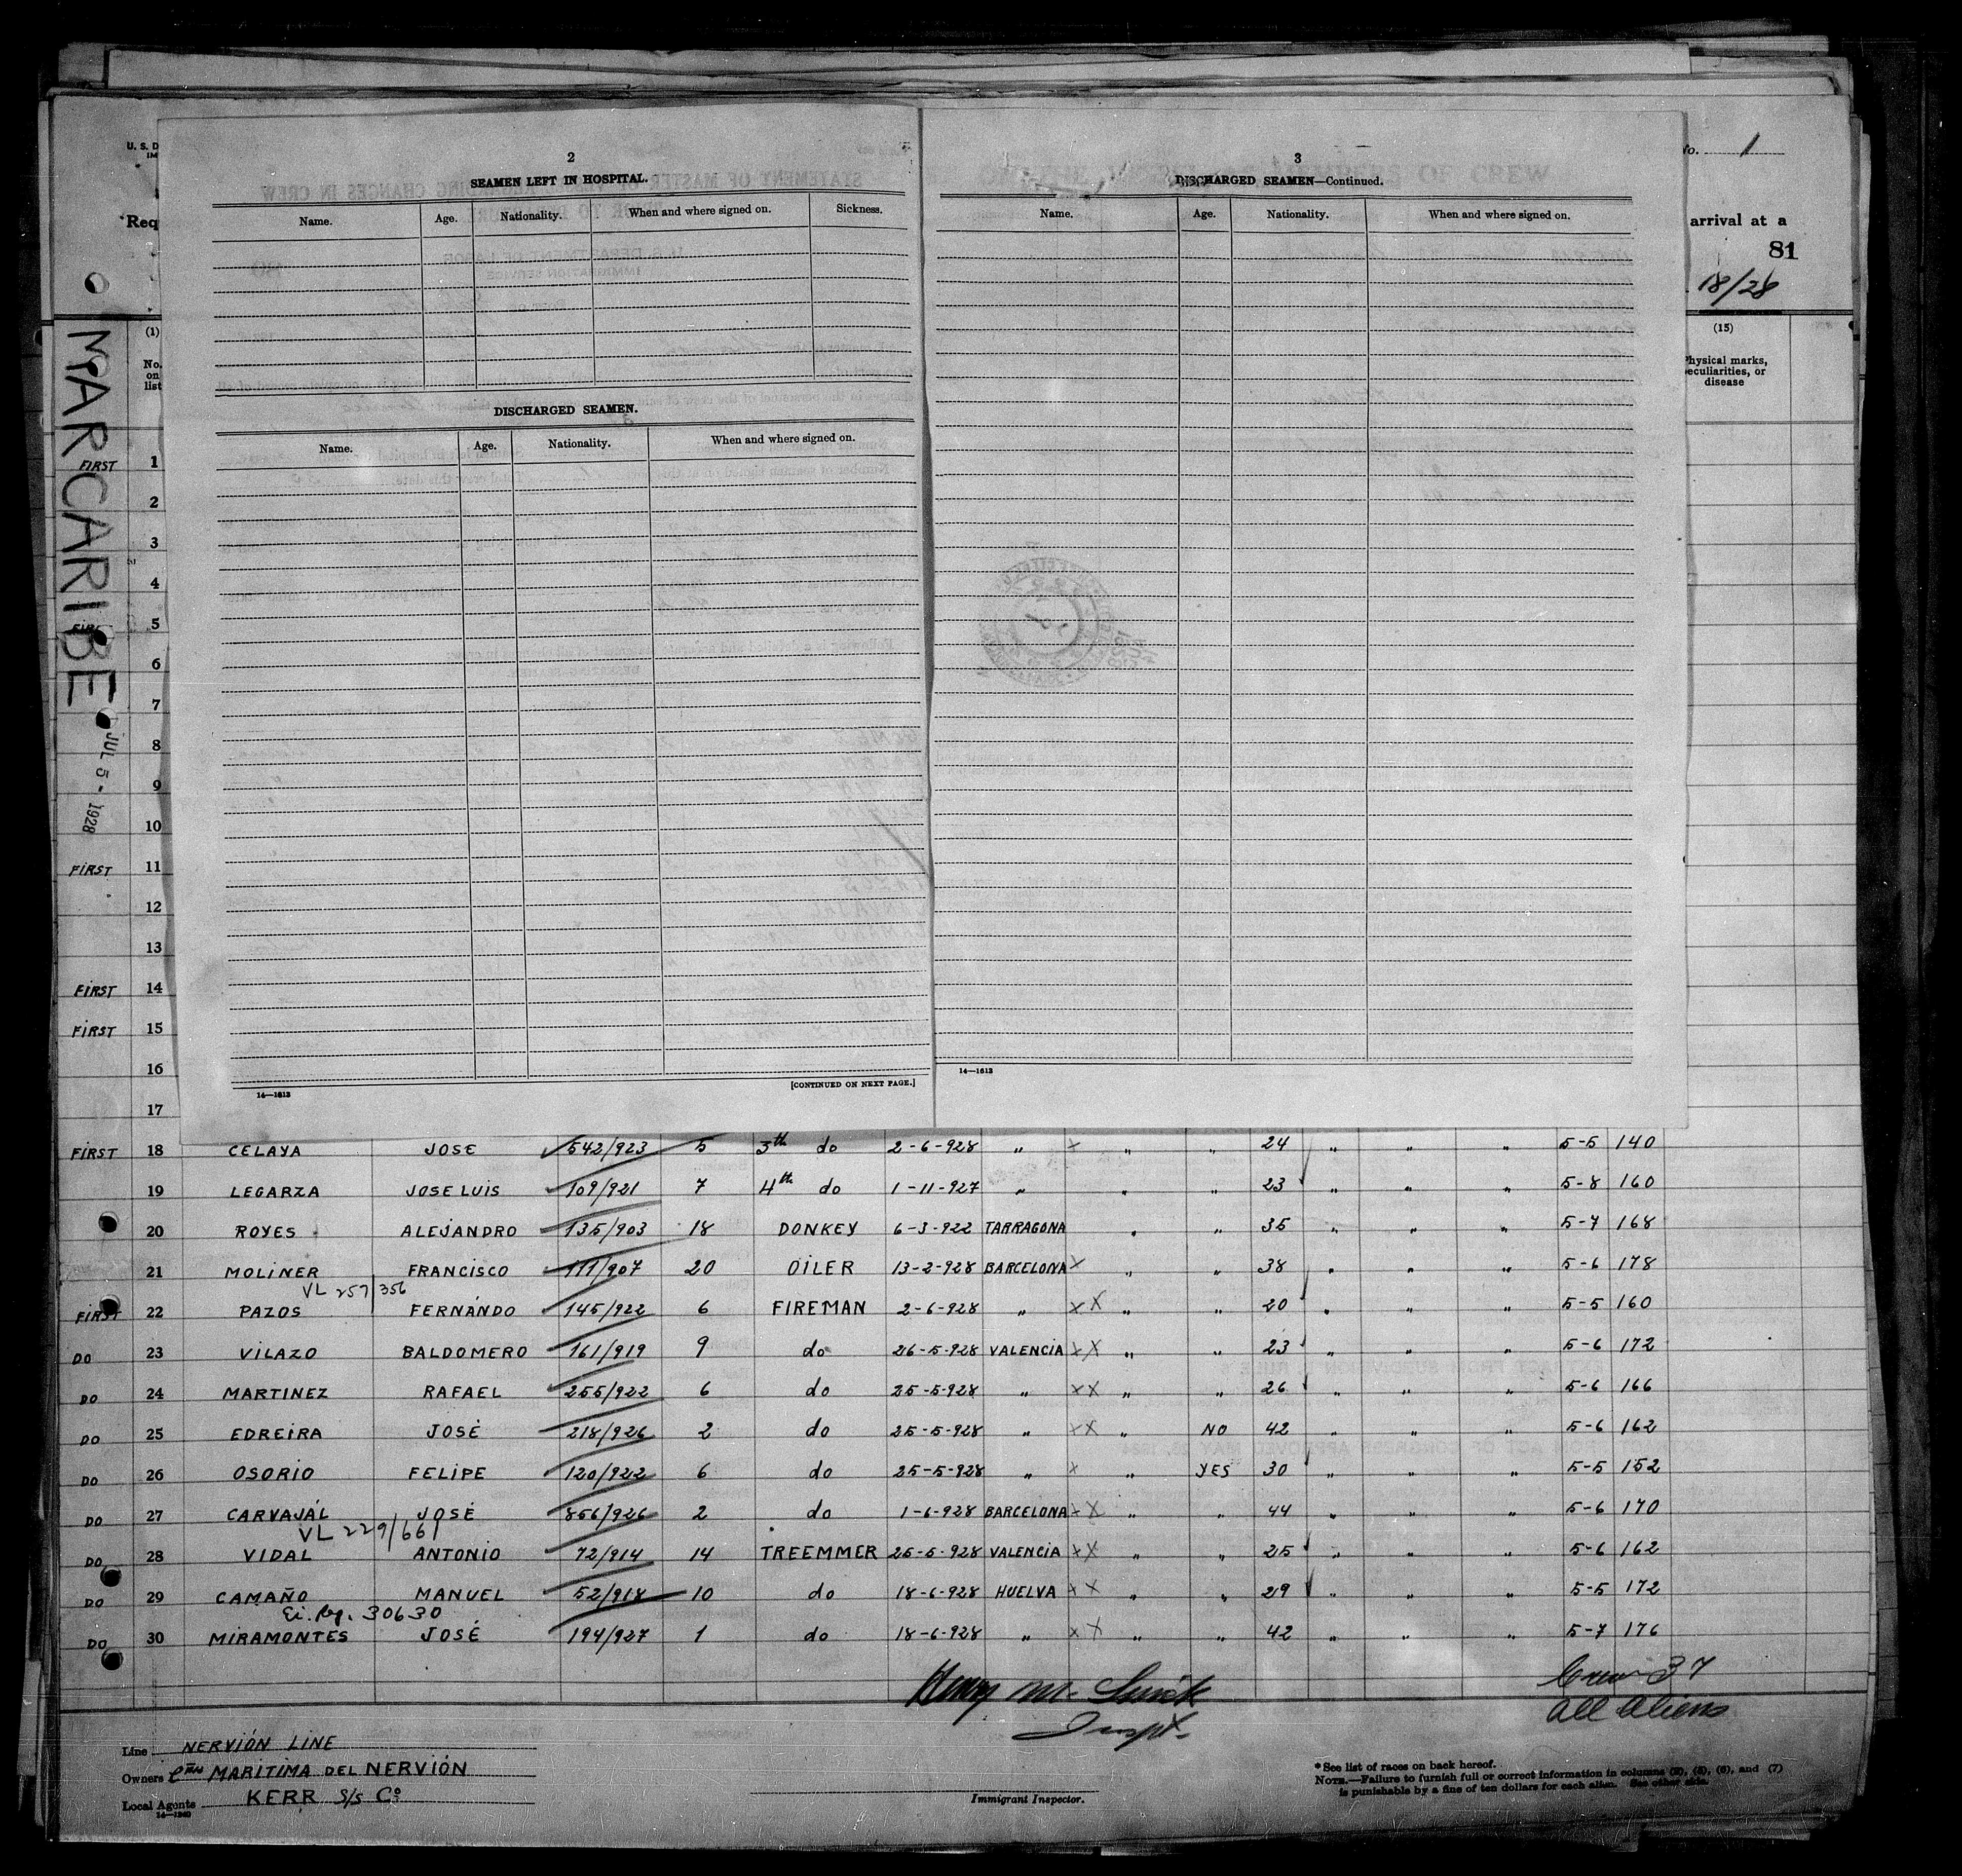 U. S. D
IM
Req
No. 1
arrival at a
81
18/28
(1)
No. on list
(15)
Physical marks, peculiarities, or disease
MARCARIBE
JUL 5 - 1928
2
SEAMEN LEFT IN HOSPITAL.
Name. Age. Nationality. When and where signed on. Sickness.
DISCHARGED SEAMEN.
Name. Age. Nationality. When and where signed on.
14—1613
[CONTINUED ON NEXT PAGE.]
3
DISCHARGED SEAMEN—Continued.
Name. Age. Nationality. When and where signed on.
14—1613
FIRST 1
2
3
4
5
6
7
8
9
10
FIRST 11
12
13
FIRST 14
FIRST 15
16
17
FIRST 18 CELAYA JOSE 542/923 5 3th do 2-6-928 " x " " 24 " " 5-5 140
19 LEGARZA JOSE LUIS 109/921 7 4th do 1-11-927 " " " 23 " " " 5-8 160
20 ROYES ALEJANDRO 135/903 18 DONKEY 6-3-922 TARRAGONA " " 35 " " " 5-7 168
21 MOLINER FRANCISCO 111/907 20 OILER 13-2-928 BARCELONA x " " 38 " " " 5-6 178
VL 257/356
FIRST 22 PAZOS FERNÁNDO 145/922 6 FIREMAN 2-6-928 " xX " " 20 " " " 5-5 160
DO 23 VILAZO BALDOMERO 161/919 9 do 26-5-928 VALENCIA xX " " 23 " " " 5-6 172
DO 24 MARTINEZ RAFAEL 255/922 6 do 25-5-928 " xX " " 26 " " " 5-6 166
DO 25 EDREIRA JOSÉ 218/926 2 do 25-5-928 " xX " NO 42 " " " 5-6 162
DO 26 OSORIO FELIPE 120/922 6 do 25-5-928 " x " YES 30 " " " 5-5 152
DO 27 CARVAJÁL JOSÉ 856/926 2 do 1-6-928 BARCELONA xX " " 44 " " " 5-6 170
VL 229/661
DO 28 VIDAL ANTONIO 72/914 14 TREEMMER 25-5-928 VALENCIA xX " " 25 " " " 5-6 162
DO 29 CAMAÑO MANUEL 52/918 10 do 18-6-928 HUELVA xX " " 29 " " " 5-5 172
Ei. Reg. 30630
DO 30 MIRAMONTES JOSÉ 194/927 1 do 18-6-928 " xX " " 42 " " " 5-7 176
Crew 37
all aliens
Henry M.
Inspt.
Line NERVIÓN LINE
Owners MARITIMA DEL NERVIÓN
Local Agents KERR S/S Co
14—1240
Immigrant Inspector.
* See list of races on back hereof.
NOTE.—Failure to furnish full or correct information in columns (2), (5), (6), and (7)
is punishable by a fine of ten dollars for each alien. See other side.